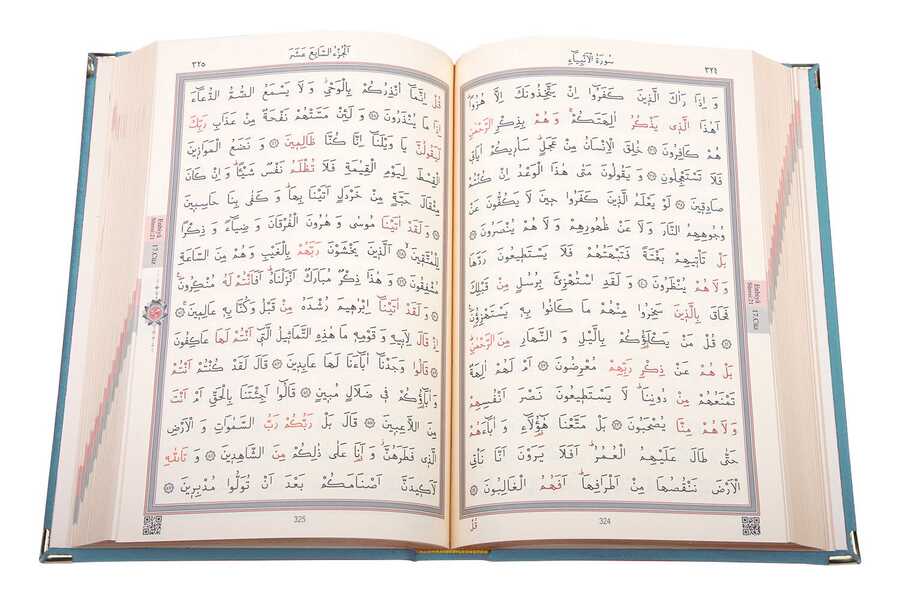 سُورَةُ الْاَنْبِيَاءِ
٣٢٤
وَ اِذَا رَاٰكَ الَّذ۪ينَ كَفَرُٓوا اِنْ يَتَّخِذُونَكَ اِلَّا هُزُوًاۜ
اَهٰذَا الَّذ۪ي يَذْكُرُ اٰلِهَتَكُمْۚ وَ هُمْ بِذِكْرِ الرَّحْمٰنِ
هُمْ كَافِرُونَ ﴿٣٦﴾ خُلِقَ الْاِنْسَانُ مِنْ عَجَلٍۜ سَاُر۪يكُمْ اٰيَات۪ي
فَلَا تَسْتَعْجِلُونِ ﴿٣٧﴾ وَ يَقُولُونَ مَتٰى هٰذَا الْوَعْدُ اِنْ كُنْتُمْ
صَادِق۪ينَ ﴿٣٨﴾ لَوْ يَعْلَمُ الَّذ۪ينَ كَفَرُوا ح۪ينَ لَا يَكُفُّونَ عَنْ
وُجُوهِهِمُ النَّارَ وَ لَا عَنْ ظُهُورِهِمْ وَ لَا هُمْ يُنْصَرُونَ ﴿٣٩﴾
بَلْ تَاْت۪يهِمْ بَغْتَةً فَتَبْهَتُهُمْ فَلَا يَسْتَط۪يعُونَ رَدَّهَا
وَ لَا هُمْ يُنْظَرُونَ ﴿٤٠﴾ وَ لَقَدِ اسْتُهْزِئَ بِرُسُلٍ مِنْ قَبْلِكَ
فَحَاقَ بِالَّذ۪ينَ سَخِرُوا مِنْهُمْ مَا كَانُوا بِه۪ يَسْتَهْزِؤُ۫نَ۟
﴿٤١﴾ قُلْ مَنْ يَكْلَؤُ۬كُمْ بِالَّيْلِ وَ النَّهَارِ مِنَ الرَّحْمٰنِۜ
بَلْ هُمْ عَنْ ذِكْرِ رَبِّهِمْ مُعْرِضُونَ ﴿٤٢﴾ اَمْ لَهُمْ اٰلِهَةٌ
تَمْنَعُهُمْ مِنْ دُونِنَاۜ لَا يَسْتَط۪يعُونَ نَصْرَ اَنْفُسِهِمْ
وَ لَا هُمْ مِنَّا يُصْحَبُونَ ﴿٤٣﴾ بَلْ مَتَّعْنَا هٰٓؤُ۬لَٓاءِ وَ اٰبَٓاءَهُمْ
حَتّٰى طَالَ عَلَيْهِمُ الْعُمُرُۜ اَفَلَا يَرَوْنَ اَنَّا نَاْتِي
الْاَرْضَ نَنْقُصُهَا مِنْ اَطْرَافِهَاۜ اَفَهُمُ الْغَالِبُونَ ﴿٤٤﴾
قُلْ
324
Enbiyâ
Sûresi 21
17. Cüz
اَلْجُزْءُ السَّابِعَ عَشَرَ
٣٢٥
قُلْ اِنَّمَٓا اُنْذِرُكُمْ بِالْوَحْيِۘ وَ لَا يَسْمَعُ الصُّمُّ الدُّعَٓاءَ
اِذَا مَا يُنْذَرُونَ ﴿٤٥﴾ وَ لَئِنْ مَسَّتْهُمْ نَفْحَةٌ مِنْ عَذَابِ رَبِّكَ
لَيَقُولُنَّ يَا وَيْلَنَٓا اِنَّا كُنَّا ظَالِم۪ينَ ﴿٤٦﴾ وَ نَضَعُ الْمَوَاز۪ينَ
الْقِسْطَ لِيَوْمِ الْقِيٰمَةِ فَلَا تُظْلَمُ نَفْسٌ شَيْـًٔاۜ وَ اِنْ كَانَ
مِثْقَالَ حَبَّةٍ مِنْ خَرْدَلٍ اَتَيْنَا بِهَاۜ وَ كَفٰى بِنَا حَاسِب۪ينَ
﴿٤٧﴾ وَ لَقَدْ اٰتَيْنَا مُوسٰى وَ هٰرُونَ الْفُرْقَانَ وَ ضِيَٓاءً وَ ذِكْرًا
لِلْمُتَّق۪ينَۙ ﴿٤٨﴾ اَلَّذ۪ينَ يَخْشَوْنَ رَبَّهُمْ بِالْغَيْبِ وَ هُمْ مِنَ السَّاعَةِ
مُشْفِقُونَ ﴿٤٩﴾ وَ هٰذَا ذِكْرٌ مُبَارَكٌ اَنْزَلْنَاهُۜ اَفَاَنْتُمْ لَهُ مُنْكِرُونَ۟
﴿٥٠﴾ وَ لَقَدْ اٰتَيْنَٓا اِبْرٰه۪يمَ رُشْدَهُ مِنْ قَبْلُ وَ كُنَّا بِه۪ عَالِم۪ينَۚ ﴿٥١﴾
اِذْ قَالَ لِاَب۪يهِ وَ قَوْمِه۪ مَا هٰذِهِ التَّمَاث۪يلُ الَّت۪ٓي اَنْتُمْ لَهَا عَاكِفُونَ
﴿٥٢﴾ قَالُوا وَجَدْنَٓا اٰبَٓاءَنَا لَهَا عَابِد۪ينَ ﴿٥٣﴾ قَالَ لَقَدْ كُنْتُمْ اَنْتُمْ
وَ اٰبَٓاؤُ۬كُمْ ف۪ي ضَلَالٍ مُب۪ينٍ ﴿٥٤﴾ قَالُٓوا اَجِئْتَنَا بِالْحَقِّ اَمْ اَنْتَ
مِنَ اللَّاعِب۪ينَ ﴿٥٥﴾ قَالَ بَلْ رَبُّكُمْ رَبُّ السَّمٰوَاتِ وَ الْاَرْضِ
الَّذ۪ي فَطَرَهُنَّۘ وَ اَنَا۬ عَلٰى ذٰلِكُمْ مِنَ الشَّاهِد۪ينَ ﴿٥٦﴾ وَ تَاللّٰهِ
لَاَك۪يدَنَّ اَصْنَامَكُمْ بَعْدَ اَنْ تُوَلُّوا مُدْبِر۪ينَ ﴿٥٧﴾
325
Enbiyâ
Sûresi 21
17. Cüz